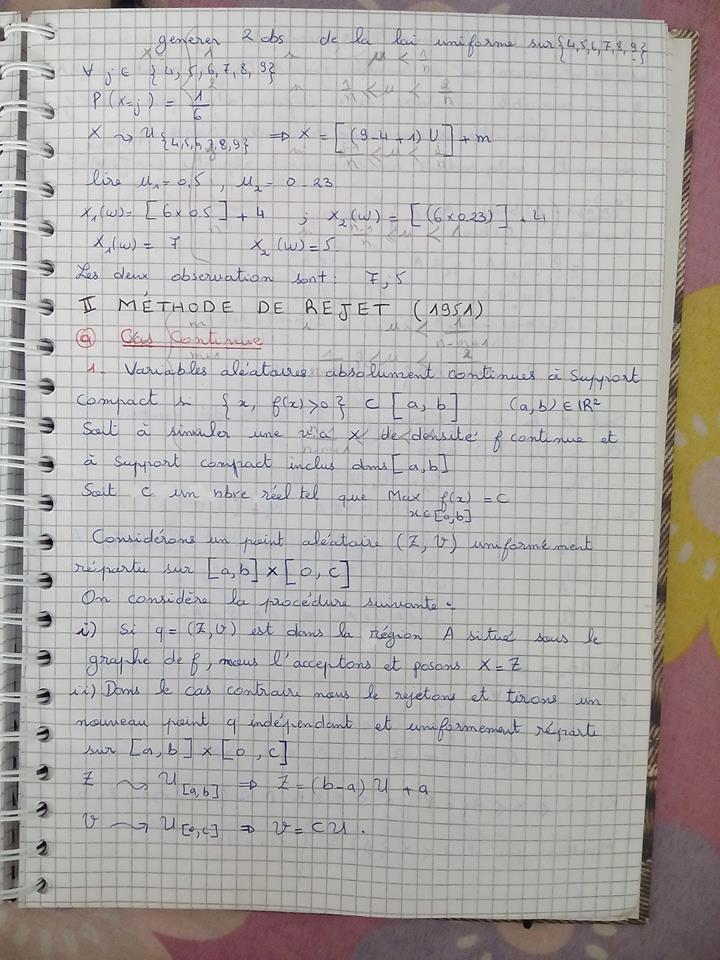 générer 2 obs de la loi uniforme sur {4,5,6,7,8,9}
∀ j ∈ {4, 5, 6, 7, 8, 9}
P(X=j) = 1/6
X ⤳ U{4,5,6,7,8,9} ⇒ X = [(9-4+1) U] + m
lire u₁ = 0.5 , u₂ = 0.23
X₁(ω) = [6×0.5] + 4 ; X₂(ω) = [(6×0.23)] + 4
X₁(ω) = 7 X₂(ω) = 5
Les deux observation sont: 7 ; 5
II MÉTHODE DE REJET (1951)
a Cas Continue
1. Variables aléataires absolument continues à Support
Compact si {x, f(x)>0} ⊂ [a, b] (a,b) ∈ IR²
Soit à simuler une va X de densité f continue et
à Support compact inclus dans [a,b]
Soit C un nbre réel tel que Max f(x) = C
x∈[a,b]
Considérons un point aléataire (Z, V) uniformément
répartu sur [a,b] × [0, C]
On considère la procédure suivante :
i) Si q = (Z,V) est dans la région A situé sous le
graphe de f, nous l'acceptons et posons X = Z
ii) Dans le cas contraire nous le rejetons et tirons un
nouveau point q indépendant et uniformement réparte
sur [a,b] × [0, C]
Z ⤳ U[a,b] ⇒ Z = (b-a) U + a
V ⤳ U[0,C] ⇒ V = C U .